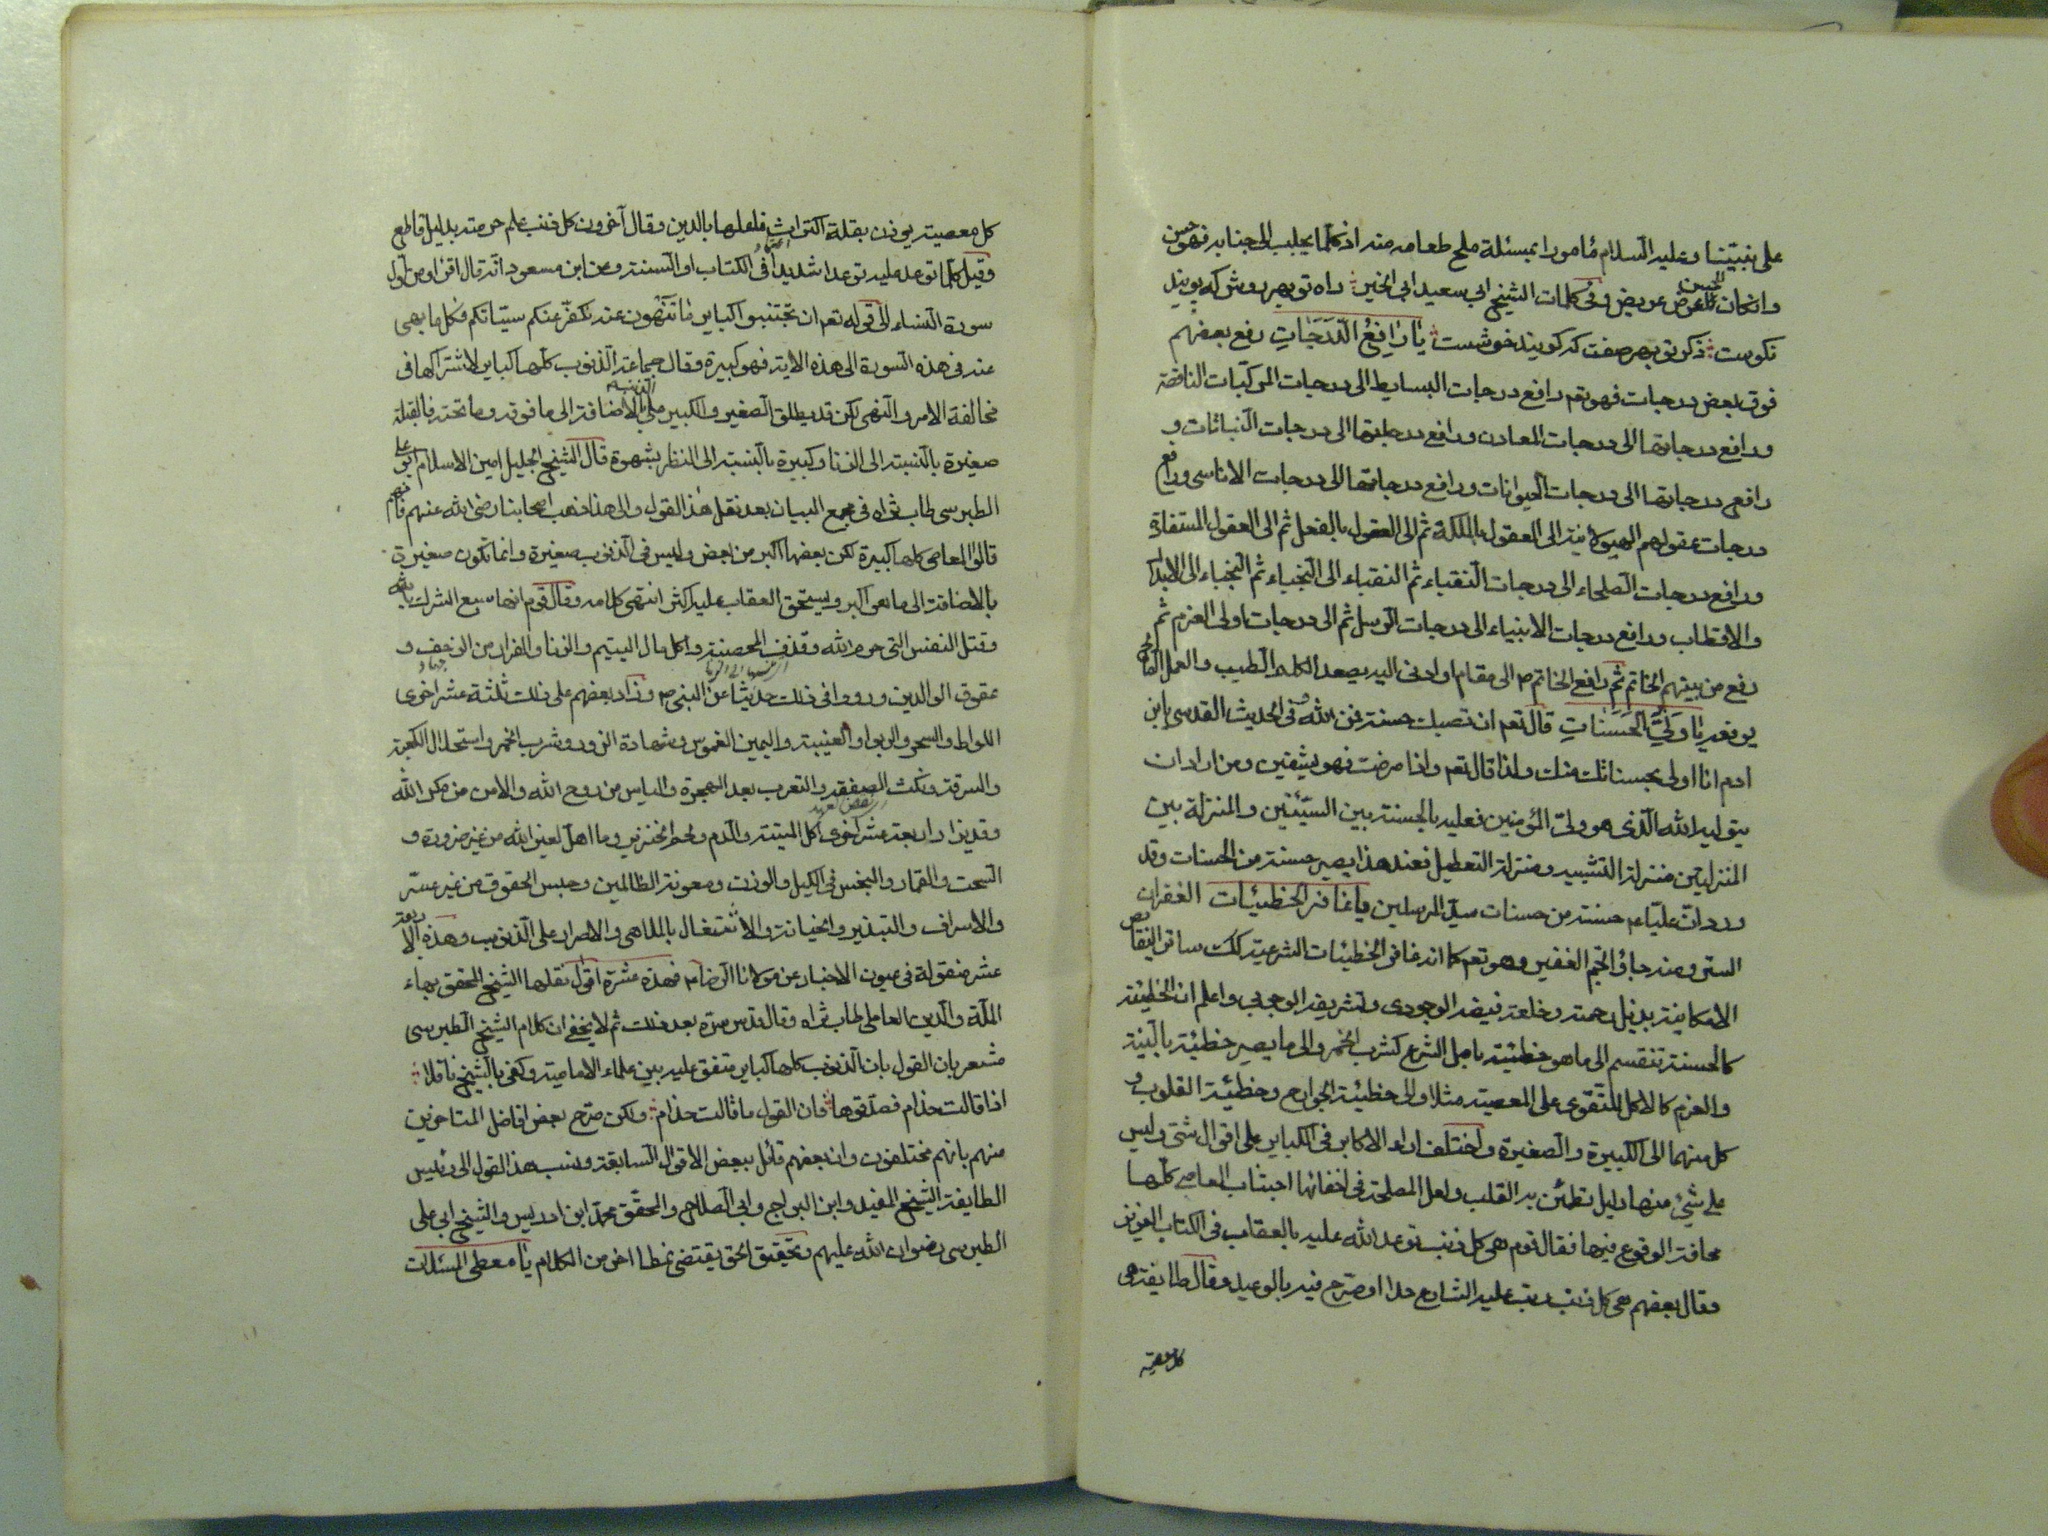 على نبيّنا وعليه السلام مأمورا بمسئلة ملح طعامه منه اذ كلما يجلب الى جنابه فهو حسن
وان كان للعوض عريض وفى كلمات الشيخ ابى سعيد ابى الخير راه تو بهر روش كه پويند
نكوست ذكر تو بهر صفت كه كويند خوشست يا رافع الدرجات رفع بعضهم
فوق بعض درجات فهو تعم رافع درجات البسايط الى درجات المركبات الناقصة
ورافع درجاتها الى درجات المعادن ورافع درجاتها الى درجات النباتات و
رافع درجاتها الى درجات الحيوانات ورافع درجاتها الى درجات الاناسى ورافع
درجات عقولهم الهيولانية الى العقول بالملكة ثم الى العقول بالفعل ثم الى العقول المستفادة
ورافع درجات الصلحاء الى درجات النقباء ثم النقباء الى النجباء ثم النجباء الى الابدال
والاقطاب ورافع درجات الانبياء الى درجات الرسل ثم الى درجات اولى العزم ثم
رفع من بينهم الخاتم ثم رافع الخاتم ص الى مقام او ادنى اليه يصعد الكلم الطيب والعمل الصالح
يرفعه يا ولىّ الحسنات قال تعم ان تصبك حسنة فمن الله وفى الحديث القدسى يابن
ادم انا اولى بحسناتك منك ولذا قال تعم واذا مرضت فهو يشفين ومن اراد ان
يتوليه الله الذى هو ولىّ المؤمنين فعليه بالحسنة بين السيّئتين والمنزلة بين
المنزلتين منزلة التشبيه ومنزلة التعطيل فعند هذا يصير حسنة من الحسنات وقد
ورد انّ عليّا ع حسنة من حسنات سيّد المرسلين يا غافر الخطيئات الغفران
الستر ومنه جاؤا الجم الغفير وهو تعم كما انه غافر الخطيئات الشرعية كك ساتر النقايص
الامكانية بذيل رحمته وخلعة فيضه الوجودى وتشريفه الوجوبى واعلم ان الخطيئة
كالحسنة تنقسم الى ما هو خطيئة باصل الشرع كشرب الخمر والى ما يصير خطيئة بالنية
والعزم كالاكل للتقوى على المعصية مثلا والى خطيئة الجوارح وخطيئة القلوب و
كل منهما الى الكبيرة والصغيرة واختلف اراء الاكابر فى الكباير على اقوال شتى وليس
على شئ منها دليل تطمئن به القلب ولعل المصلحة فى اخفائها اجتناب المعاصى كلّها
مخافة الوقوع فيها فقال قوم هى كل ذنب توعد الله عليه بالعقاب فى الكتاب العزيز
وقال بعضهم هى كل ذنب رتب عليه الشارع حدا او صرّح فيه بالوعيد وقال طايفة هى
كل معصية
كل معصية يوذن بقلة اكتراث فاعلها بالدين وقال آخرون كل ذنب علم حرمته بدليل قاطع
وقيل كلما توعد عليه توعدا شديدا فى الكتاب او السنة وعن ابن مسعود انه قال اقرؤا من اول
سورة النساء الى قوله تعم ان تجتنبوا كباير ما تنهون عنه نكفّر عنكم سيّئاتكم فكل ما نهى
عنه فى هذه السورة الى هذه الاية فهو كبيرة وقال جماعة الذنوب كلّها كباير لاشتراكها فى
مخالفة الامر والنهى لكن قد يطلق الصغير والكبير على الذنب بالاضافة الى ما فوقه وما تحته فالقبلة
صغيرة بالنسبة الى الزنا وكبيرة بالنسبة الى النظر بشهوة قال الشيخ الجليل امين الاسلام ابو على
الطبرسى طاب ثراه فى مجمع البيان بعد نقل هذا القول والى هذا ذهب اصحابنا رضى الله عنهم فانهم
قالوا المعاصى كلها كبيرة لكن بعضها اكبر من بعض وليس فى الذنوب صغيرة وانما تكون صغيرة
بالاضافة الى ما هو اكبر ويستحق العقاب عليه اكثر انتهى كلامه وقال قوم انها سبع الشرك بالله
وقتل النفس التى حرم الله وقذف المحصنة واكل مال اليتيم والزنا والفرار من الزحف و
عقوق الوالدين ورووا فى ذلك حديثا عن النبى ص وزاد بعضهم على ذلك ثلثة عشر اخرى
اللواط والسحر والربوا والغيبة واليمين الغموس وشهادة الزور وشرب الخمر واستحلال الكعبة
والسرقة ونكث الصفقة والتعرب بعد الهجرة والياس من روح الله والامن من مكر الله
وقد يزاد اربعة عشر اخرى اكل الميتة والدم ولحم الخنزير وما اهلّ لغير الله من غير ضرورة و
السحت والقمار والبخس فى الكيل والوزن ومعونة الظالمين وحبس الحقوق من غير عسر
والاسراف والتبذير والخيانة والاشتغال بالملاهى والاصرار على الذنوب وهذه الاربعة
عشر منقولة فى عيون الاخبار عن مولانا الرضا ع فهذه عشرة اقوال نقلها الشيخ المحقق بهاء
الملّة والدين العاملى طاب ثراه وقال قدس سره بعد ذلك ثم لا يخفى ان كلام الشيخ الطبرسى
مشعر بان القول بان الذنوب كلها كباير متفق عليه بين علماء الامامية وكفى بالشيخ ناقلا
اذا قالت حذام فصدّقوها فان القول ما قالت حذام ولكن صرّح بعض افاضل المتاخرين
منهم بانهم مختلفون وان بعضهم قائل ببعض الاقوال السابقة ونسب هذا القول الى رئيس
الطايفة الشيخ المفيد وابن البراج وابى الصلاح والمحقق محمد ابن ادريس والشيخ ابى على
الطبرسى رضوان الله عليهم وتحقيق الحق يقتضى نمطا اخر من الكلام يا معطى المسئلات